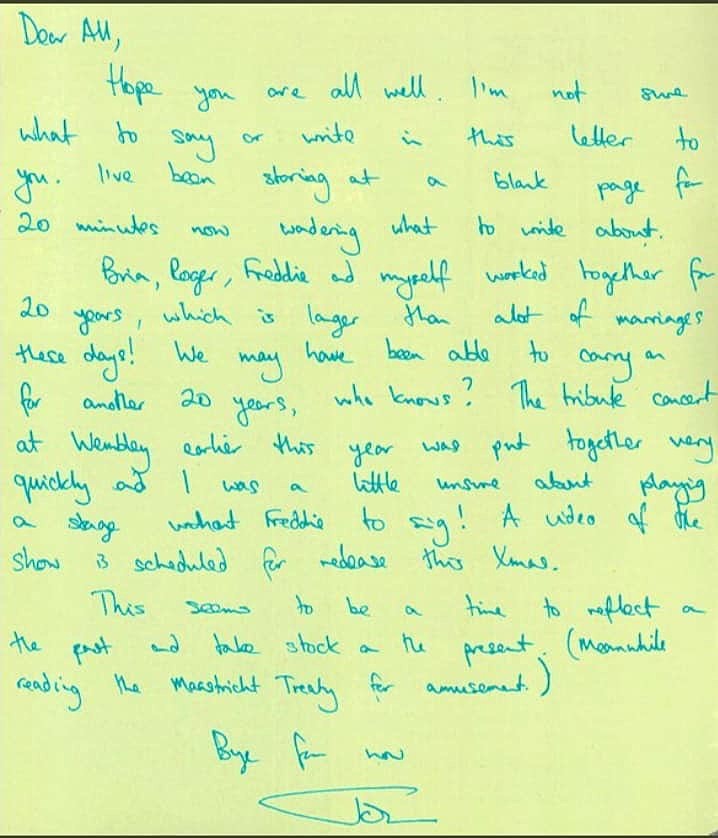 Dear All,
Hope you are all well. I'm not sure
what to say or write in this letter to
you. I've been staring at a blank page for
20 minutes now wondering what to write about.
Brian, Roger, Freddie and myself worked together for
20 years, which is longer than alot of marriages
these days! We may have been able to carry on
for another 20 years, who knows? The tribute concert
at Wembley earlier this year was put together very
quickly and I was a little unsure about playing
on stage without Freddie to sing! A video of the
show is scheduled for release this Xmas.
This seems to be a time to reflect on
the past and take stock on the present. (Meanwhile
reading the Maastricht Treaty for amusement.)
Bye for now
John